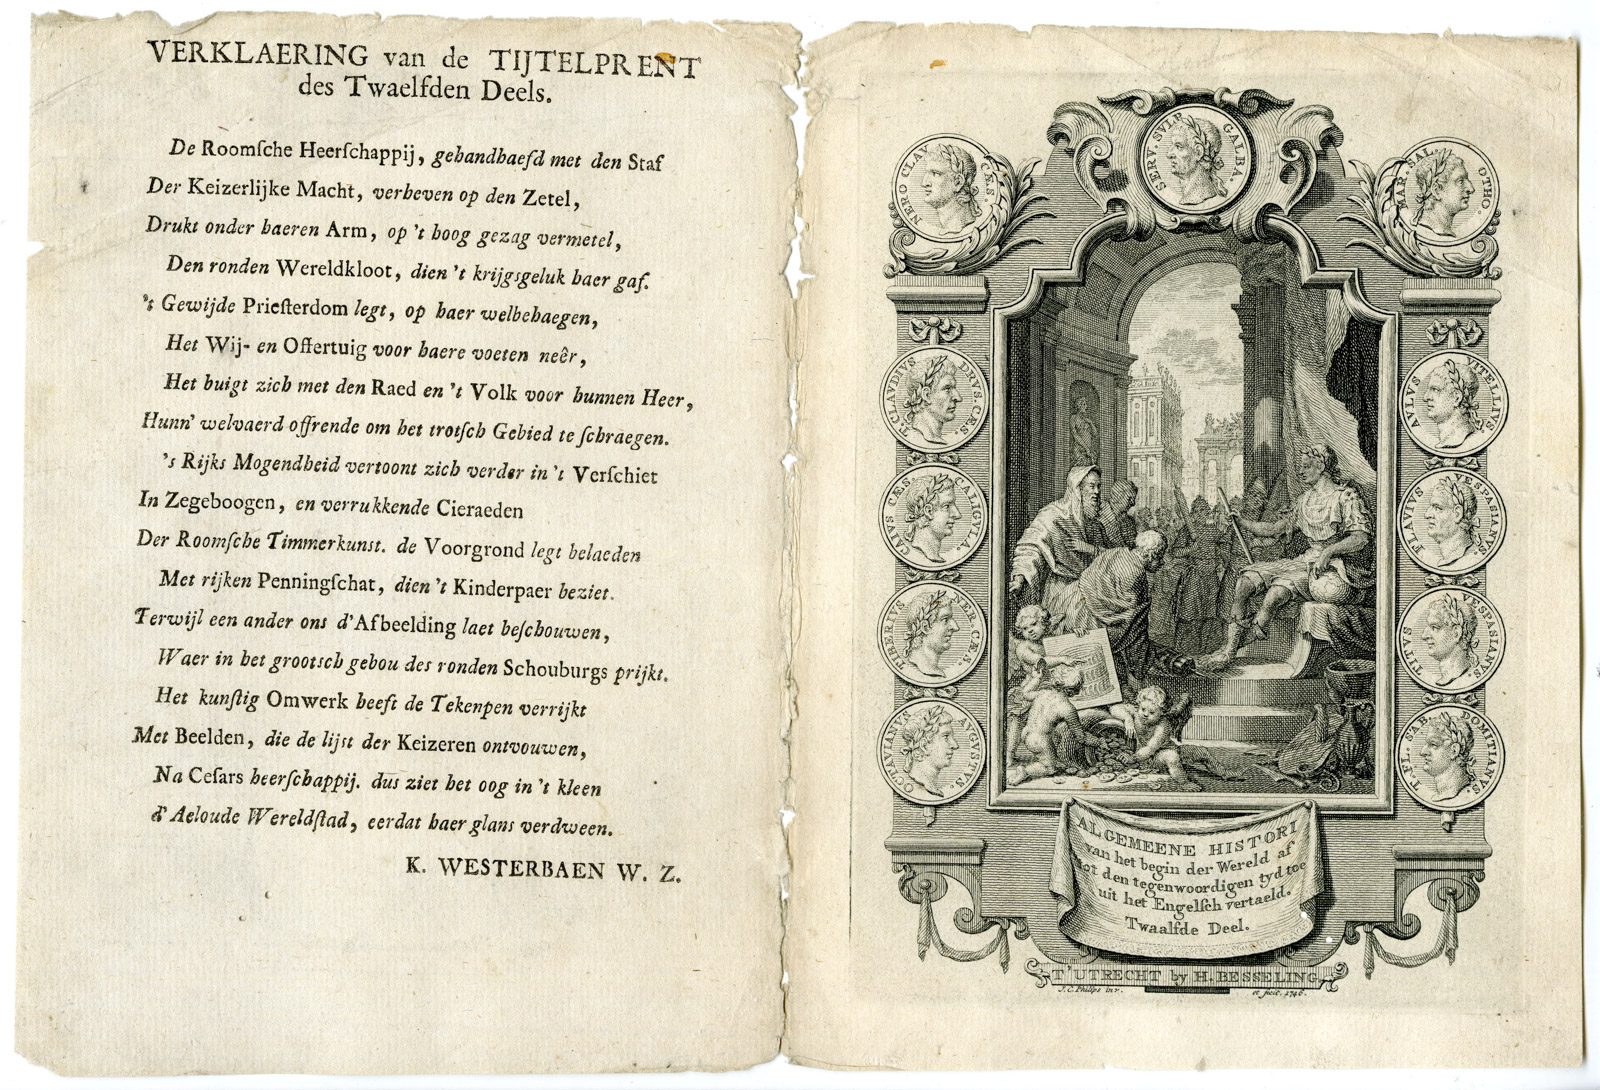 VERKLAERING van de TIJTELPRENT
des Twaelfden Deels.
De Roomsche Heerschappij, gehandhaefd met den Staf
Der Keizerlijke Macht, verheven op den Zetel,
Drukt onder haeren Arm, op 't hoog gezag vermetel,
Den ronden Wereldkloot, dien 't krijgsgeluk haer gaf.
't Gewijde Priesterdom legt, op haer welbehaegen,
Het Wij- en Offertuig voor haere voeten neêr,
Het buigt zich met den Raed en 't Volk voor hunnen Heer,
Hunn' welvaerd offrende om het trotsch Gebied te schraegen.
's Rijks Mogendheid vertoont zich verder in 't Verschiet
In Zegeboogen, en verrukkende Cieraeden
Der Roomsche Timmerkunst. de Voorgrond legt belaeden
Met rijken Penningschat, dien 't Kinderpaer beziet.
Terwijl een ander ons d'Afbeelding laet beschouwen,
Waer in het grootsch gebou des ronden Schouburgs prijkt.
Het kunstig Omwerk heeft de Tekenpen verrijkt
Met Beelden, die de lijst der Keizeren ontvouwen,
Na Cesars heerschappij. dus ziet het oog in 't kleen
d'Aeloude Wereldstad, eerdat haer glans verdween.
K. WESTERBAEN W. Z.
NERO CLAV CÆS.
SERV. SVLP GALBA.
MAR. SAL. OTHO.
T. CLAVDIVS DRVS. CÆS.
AVLVS VITELLIVS
CAIVS CÆS. CALIGVLA.
FLAVIVS VESPASIANVS.
TIBERIVS NER. CÆS.
TITVS VESPASIANVS
OCTAVIANVS AVGVSTVS.
T. FL. SAB. DOMITIANVS.
ALGEMEENE HISTORI
van het begin der Wereld af
tot den tegenwoordigen tyd toe
uit het Engelsch vertaeld.
Twaalfde Deel.
T'UTRECHT by H. BESSELING.
J. C. Philips inv. et fecit. 1746.